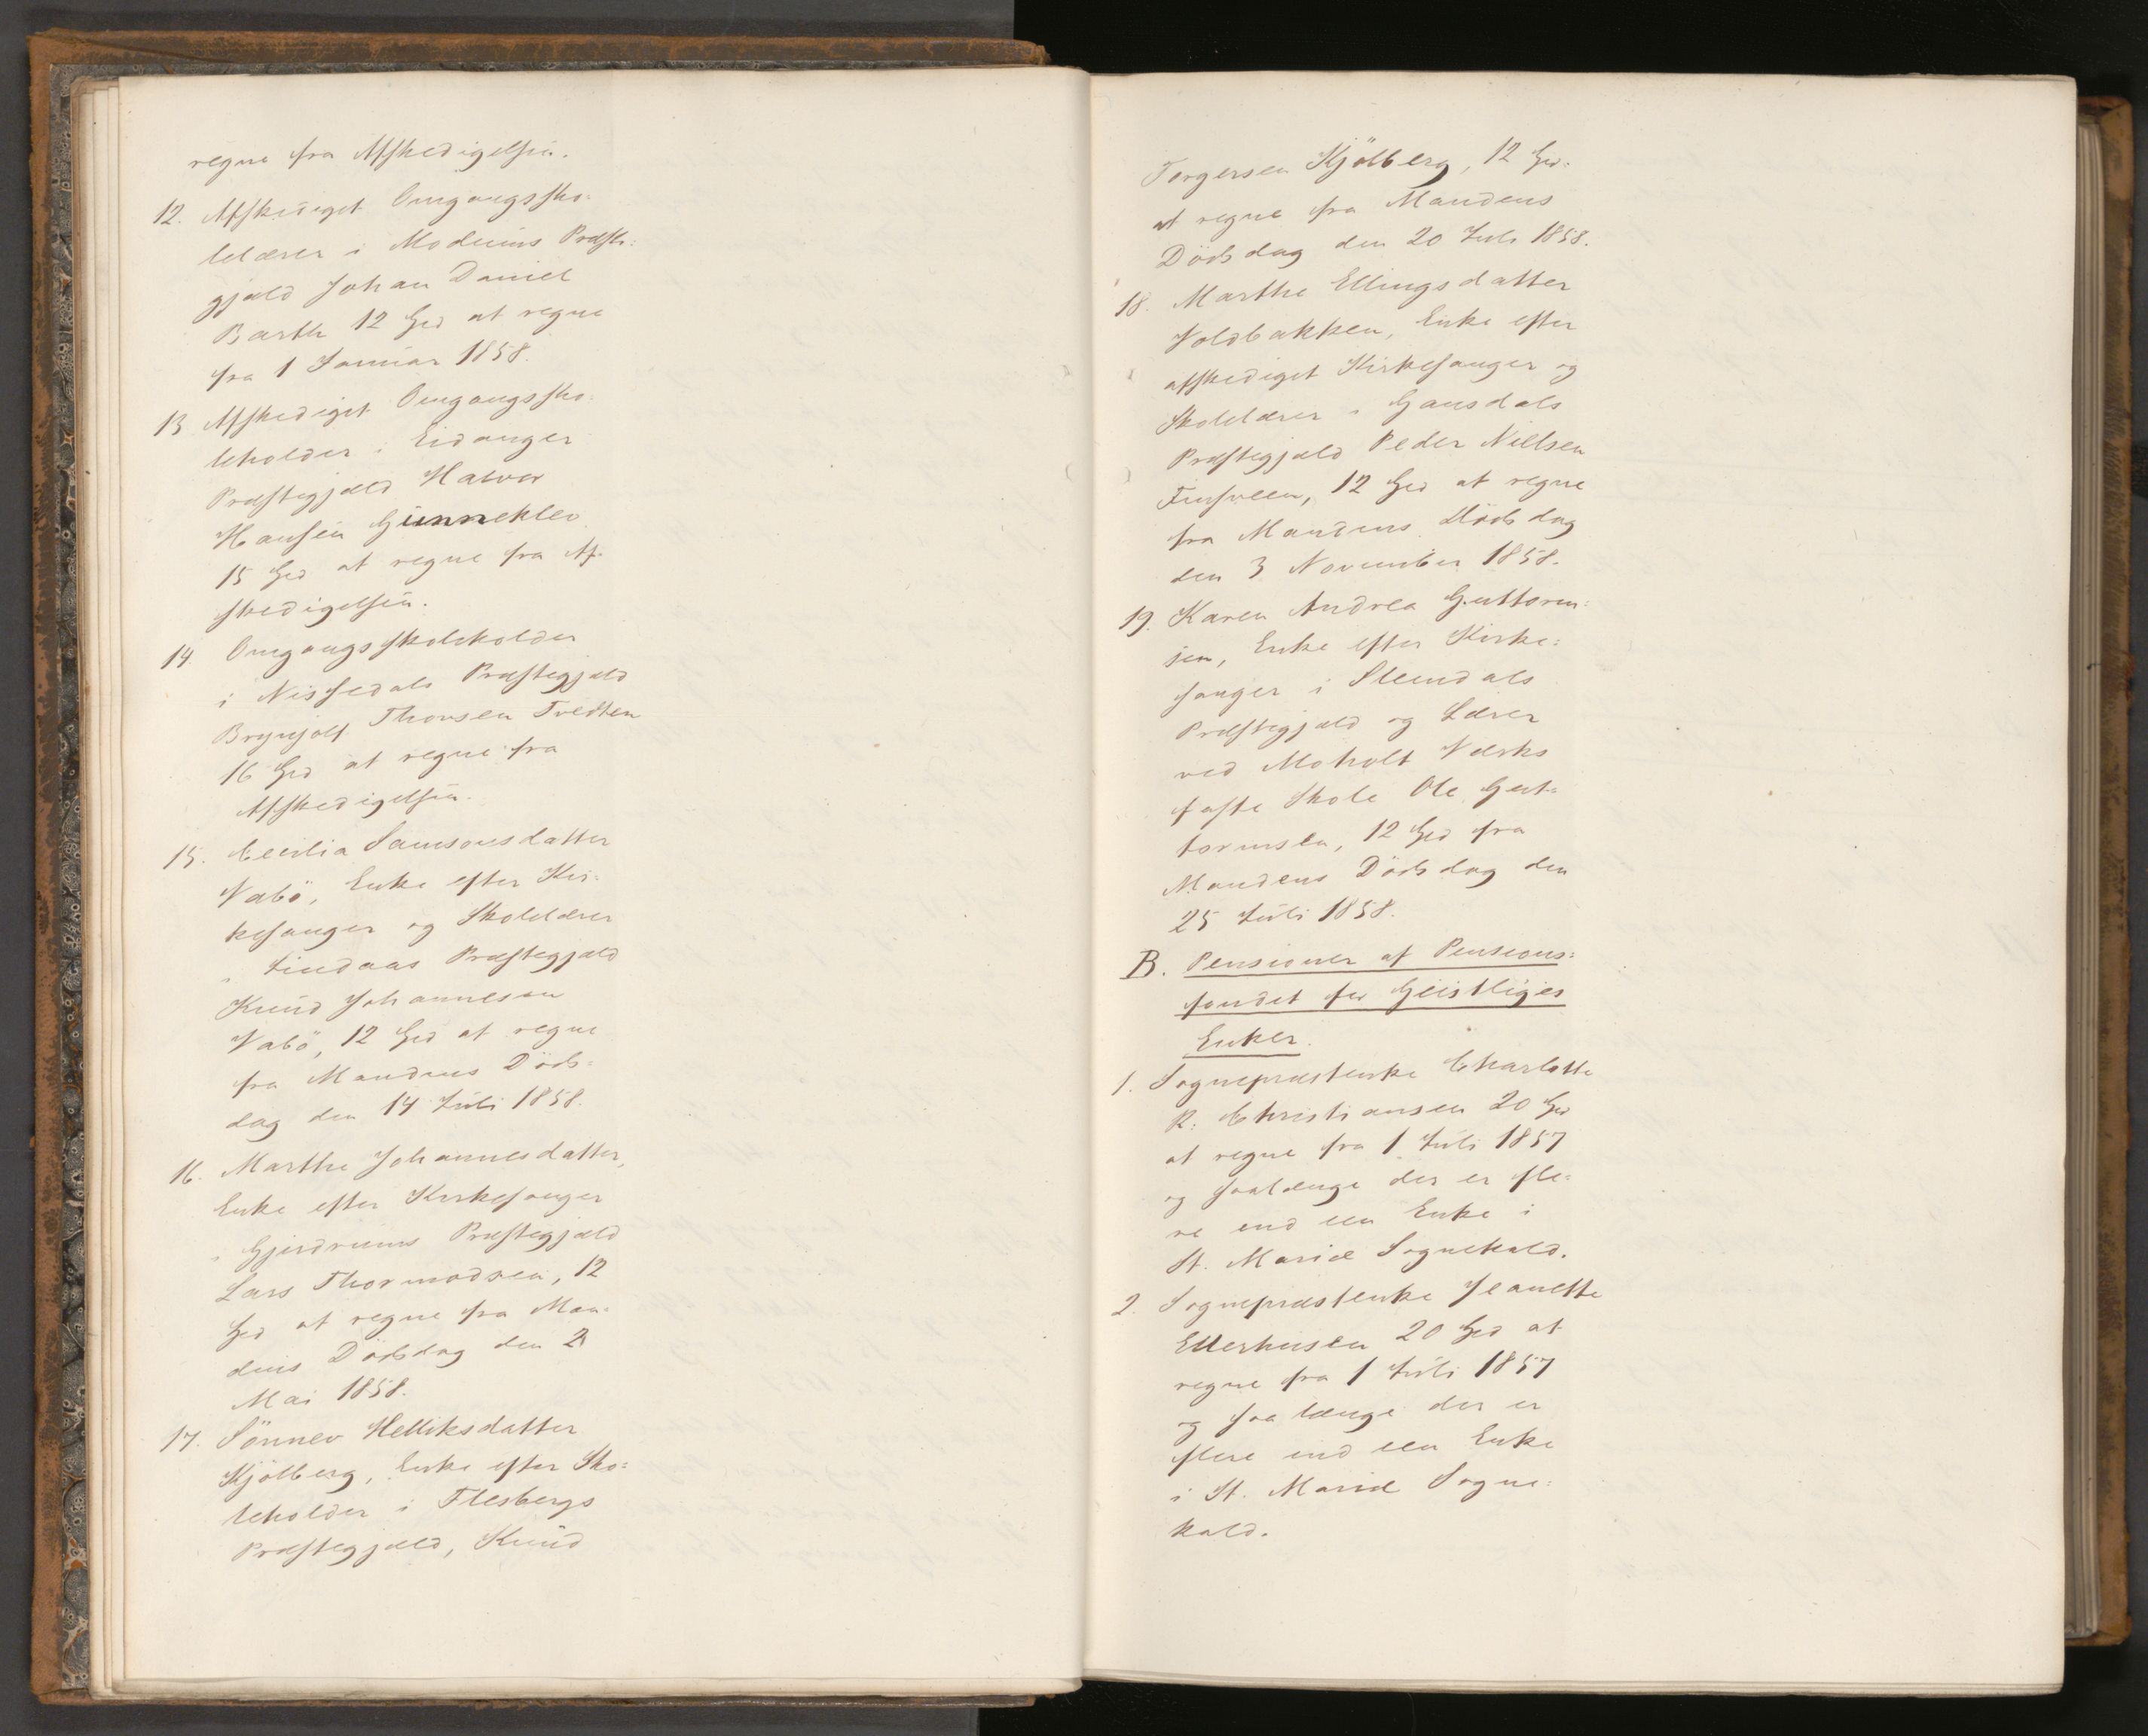 regne fra Afskedigelsen.
12. Afskediget Omgangssko-
lelærer i Modums Præste-
gjæld Johan Daniel
Barth 12 Spd at regne
fra 1 Januar 1858.
13 Afskediget Omgangssko-
leholder i Eidanger
Præstegjæld Halvor
Hansen Gunneklev
15 Spd at regne fra Af-
skedigelsen.
14 Omgangsskoleholder
i Nissedals Præstegjæld
Brynjolf Thorsen Tvedten
16 Spd at regne fra
Afskedigelsen.
15. Cecilia Samsonsdatter
Vabö, Enke efter Kir-
kesanger og Skolelærer
i Lindaas Præstegjæld
Knud Johannesen
Vabö, 12 Spd at regne
fra Mandens Döds-
dag den 14 Juli 1858.
16. Marthe Johannesdatter,
Enke efter Kirkesanger
i Gjerdrums Præstegjæld
Lars Thormodsen, 12
Spd at regne fra Man-
dens Dödsdag den 2
Mai 1858.
17. Sönnev Helliksdatter
Kjölberg, Enke efter Sko-
leholder i Flesbergs
Præstegjæld, Knud
Torgersen Kjölberg, 12 Spd-
at regne fra Mandens
Dödsdag den 20 Juli 1858.
18. Marthe Ellingsdatter
Voldbakken, Enke efter
afskediget Kirkesanger og
Skolelærer i Gausdals
Præstegjæld Peder Nielsen
12 Spd at regne
fra Mandens Dödsdag
den 3 November 1858.
19. Karen Andrea Guttorm-
sen, Enke efter Kirke-
sanger i Slemdals
Præstegjæld og Lærer
ved Moholt Værks
faste Skole Ole Gut-
tormsen, 12 Spd fra
Mandens Dödsdag den
25 Juli 1858.
B. Pensioner af Pensions-
fondet for Geistliges
Enker.
1. Sognepræstenke Charlotte
R. Christiansen 20 Spd
at regne fra 1 Juli 1857
og saalænge der er fle-
re end een Enke i
St. Mariæ Sognekald.
2. Sognepræstenke Jeanette
Ellerhusen 20 Spd at
regne fra 1 Juli 1857
og saa længe der er
flere end een Enke
i St. Mariæ Sogne-
kald.